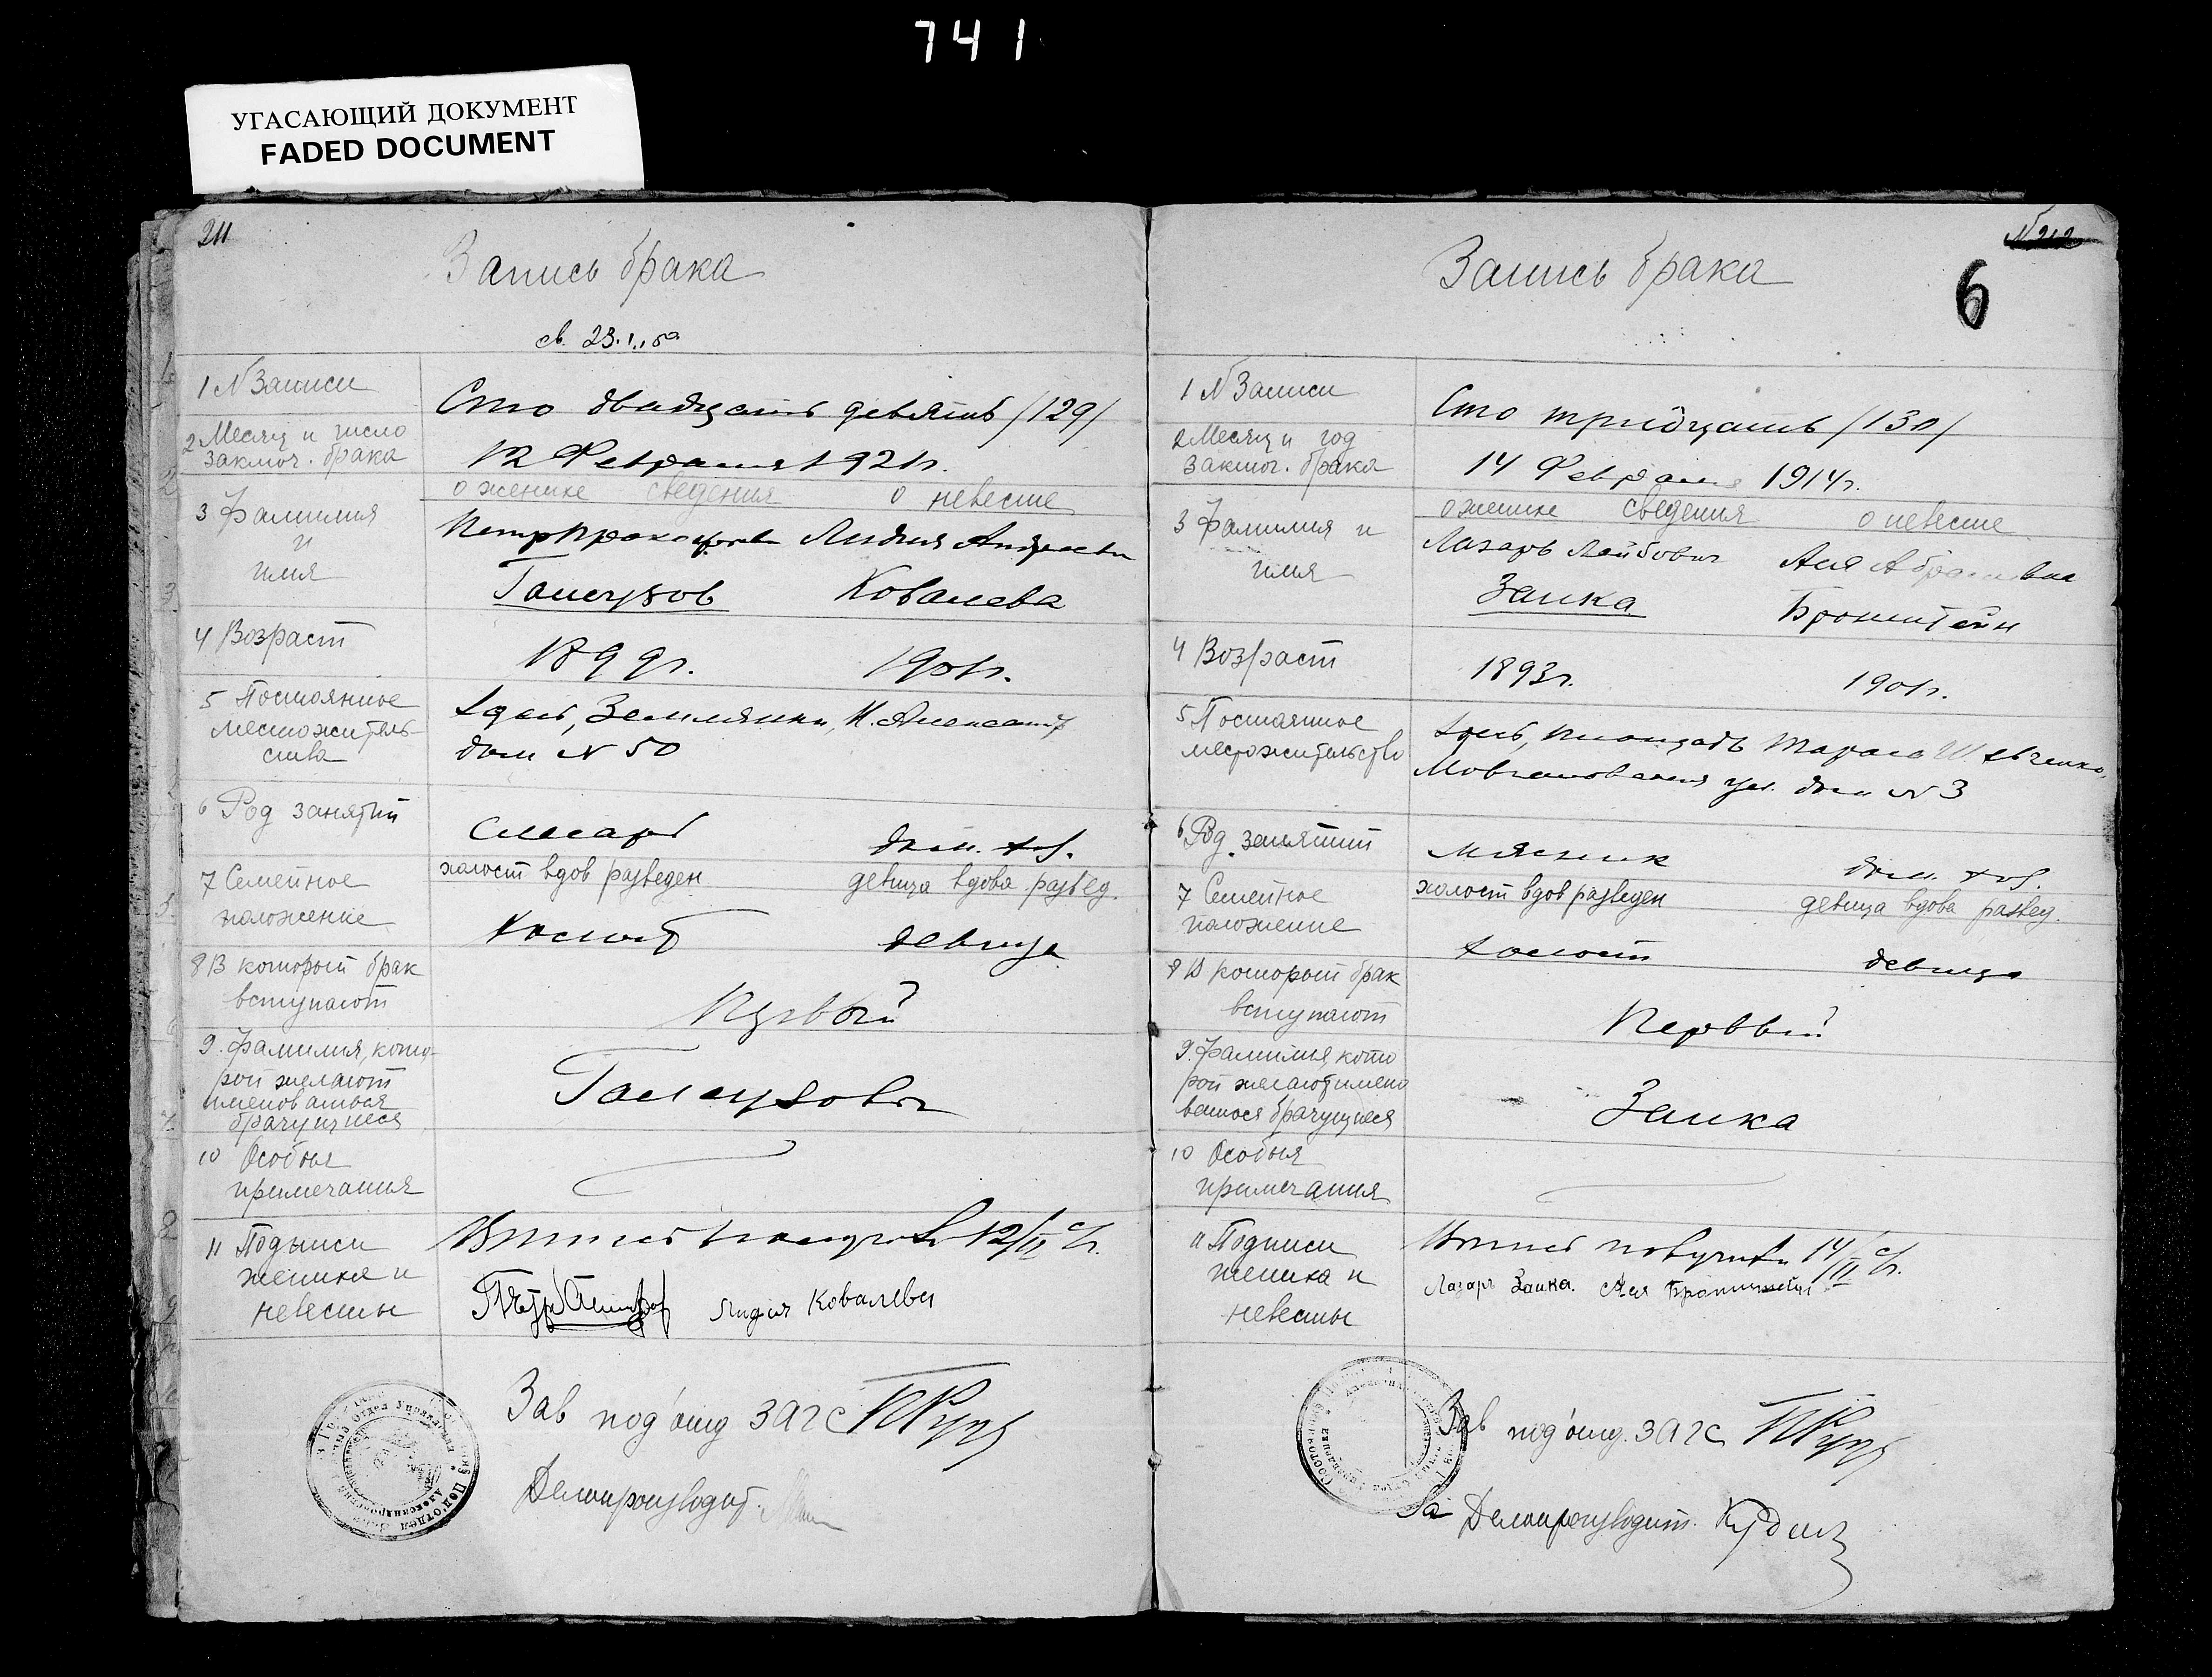 741
УГАСАЮЩИЙ ДОКУМЕНТ
FADED DOCUMENT
211
Запись брака
св. 23.I.
1 N Записи
Сто двадцать девять /129/
2 Месяц и число
заключ. брака
12 Февраля 1921 г.
о женихе сведения о невесте
3 Фамилия
и
имя
Петр Лидия Андреевн
Ковалева
4 Возраст
1899 г. 1901 г.
5 Постоянное
местожитель-
ства
здесь, Землянки,
дом N 50
6 Род занятий
слесарь дом. хоз.
7 Семейное
положение
холост вдов разведен девица вдова развед.
Холост девица
8 В который брак
вступают
Первый
9. Фамилия, кото-
рой желают
именоваться
брачущиеся
10 Особыя
примечания
11 Подписи
жениха и
невесты
12/II с/г.
Лидия Ковалева
Зав под'отд ЗАГС
Делопроизводит.
N 212
6
Запись брака
1 N Записи
Сто тридцать /130/
2 Месяц и год
заключ. брака
14 Февраля 1914 г.
о женихе сведения о невесте
3 Фамилия и
имя
Лазарь Лейбович Ася Абрамовна
Заика Бронштейн
4 Возраст
1893 г. 1901 г.
5 Постоянное
местожительство
здесь, площадь Тараса Шевченко,
ул. дом N 3
6 Род. занятий
мясник дом. хоз.
7 Семейное
положение
холост вдов разведен девица вдова развед.
холост девица
8 В который брак
вступают
Первый
9. Фамилия, кото
рой желают имено
ваться брачущиеся
Заика
10 Особыя
примечания
11 Подписи
жениха и
невесты
14/II с/г.
Лазарь Заика. Ася Бронштейн
Зав под'отд. ЗАГС
За Делопроизводит.